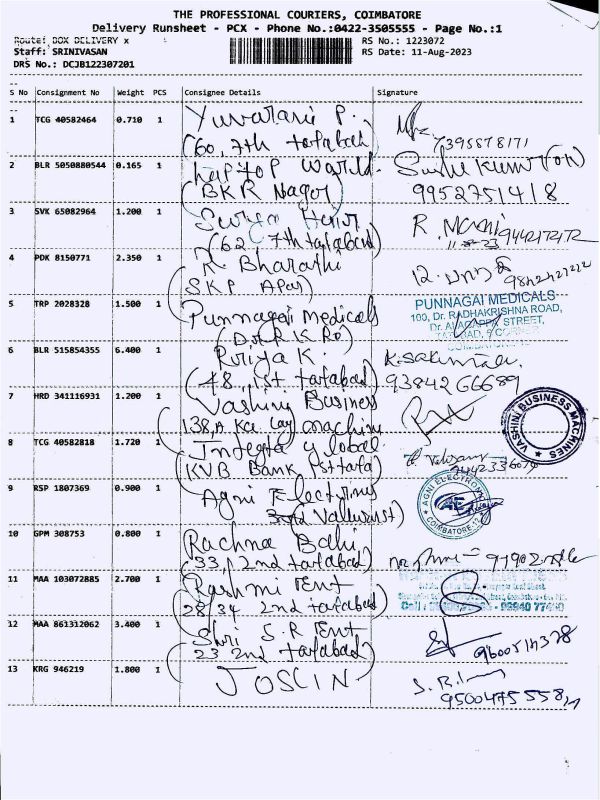 THE PROFESSIONAL COURIERS, COIMBATORE
Delivery Runsheet - PCX - Phone No.:0422-3505555 - Page No.:1
Route: BOX DELIVERY x RS No.: 1223072
Staff: SRINIVASAN RS Date: 11-Aug-2023
DRS No.: DCJB122307201
S No Consignment No Weight PCS Consignee Details Signature
1 TCG 40582464 0.710 1 Yuvarani P.
(60, 7th tatabad
7395878171
2 BLR 5050880544 0.165 1 Laptop World
(BKR Nagar)
9952751418
3 SVK 65082964 1.200 1
(62, 7th tatabad)
R. Mani 9442172172
4 PDK 8150771 2.350 1 K. Bharathi
(SKP Apar)
5 TRP 2028328 1.500 1 Punnagai Medicals
PUNNAGAI MEDICALS
100, Dr. RADHAKRISHNA ROAD,
Dr. ALAGAPPA STREET,
6 BLR 515854355 6.400 1 Priya K.
(48, 1st tatabad)
9384266689
7 HRD 341116931 1.200 1 Vashini Business
machine
VASHINI BUSINESS MACHINES
8 TCG 40582818 1.720 1 Integra Global
(KVB Bank
9 RSP 1807369 0.900 1 Agni
AGNI ELECTRONI
AE
COIMBATORE-12
10 GPM 308753 0.800 1 Rachna
(33, 2nd tatabad)
11 MAA 103072885 2.700 1 Rashmi Ent
28/34 2nd tatabad
12 MAA 861312062 3.400 1 Shri S.R Ent
23 2nd tatabad)
13 KRG 946219 1.800 1 JOSLIN